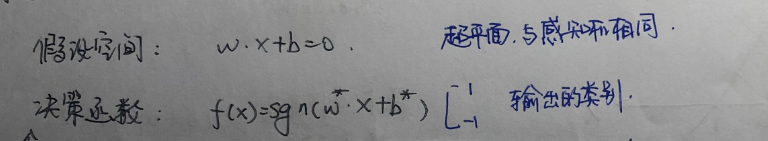 假设空间： w·x+b=0. 超平面.与感知机相同.
决策函数： f(x)=sgn(w*·x+b*) [1 -1 输出的类别.